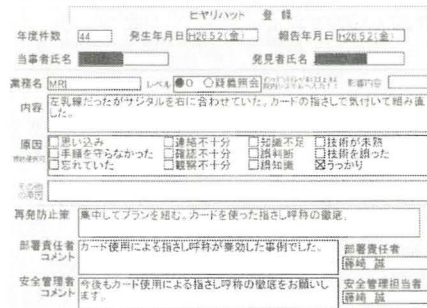 ヒヤリハット 登録
年度件数 44 発生年月日 H26.5.2(金) 報告年月日 H26.5.2(金)
当事者氏名 発見者氏名
業務名 MRI レベル ●0 ○疑義照会 影響内容
内容 左乳腺だったがサジタルを右に合わせていた。カードの指さしで気付いて組み直した。
原因 □思い込み □連絡不十分 □知識不足 □技術が未熟
□手順を守らなかった □確認不十分 □誤判断 □技術を誤った
□忘れていた □観察不十分 □誤知識 ☒うっかり
その他の原因
再発防止策 集中してプランを組む。カードを使った指さし呼称の徹底。
部署責任者コメント カード使用による指さし呼称が奏効した事例でした。 部署責任者
藤崎 誠
安全管理者コメント 今後もカード使用による指さし呼称の徹底をお願いします。 安全管理担当者
藤崎 誠